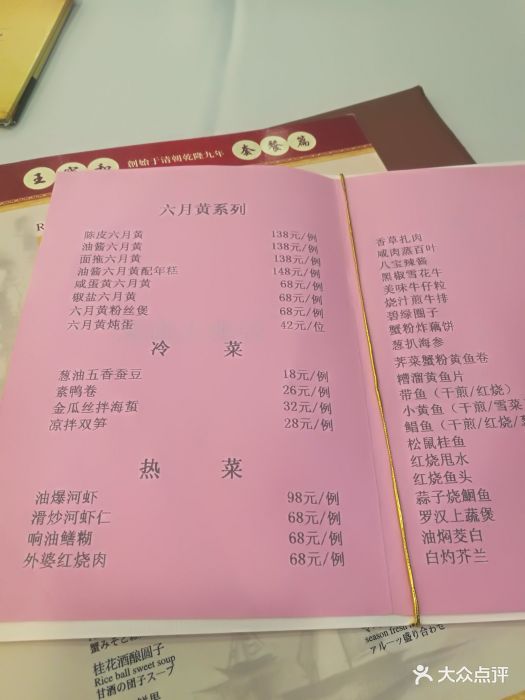 创始于清朝乾隆九年
套餐篇
六月黄系列
陈皮六月黄 138元/例
油酱六月黄 138元/例
面拖六月黄 138元/例
油酱六月黄配年糕 148元/例
咸蛋黄六月黄 68元/例
椒盐六月黄 68元/例
六月黄粉丝煲 68元/例
六月黄炖蛋 42元/位
冷菜
葱油五香蚕豆 18元/例
素鸭卷 26元/例
金瓜丝拌海蜇 32元/例
凉拌双笋 28元/例
热菜
油爆河虾 98元/例
滑炒河虾仁 68元/例
响油鳝糊 68元/例
外婆红烧肉 68元/例
香草扎肉
咸肉蒸百叶
八宝辣酱
黑椒雪花牛
美味牛仔粒
烧汁煎牛排
碧绿圈子
蟹粉炸藕饼
葱扒海参
荠菜蟹粉黄鱼卷
糟溜黄鱼片
带鱼（干煎/红烧）
小黄鱼（干煎/雪菜
鲳鱼（干煎/红烧/
松鼠桂鱼
红烧甩水
红烧鱼头
蒜子烧鮰鱼
罗汉上蔬煲
油焖茭白
白灼芥兰
桂花酒酿圆子
Rice ball sweet soup
甘酒の団子スープ
season fresh
大众点评